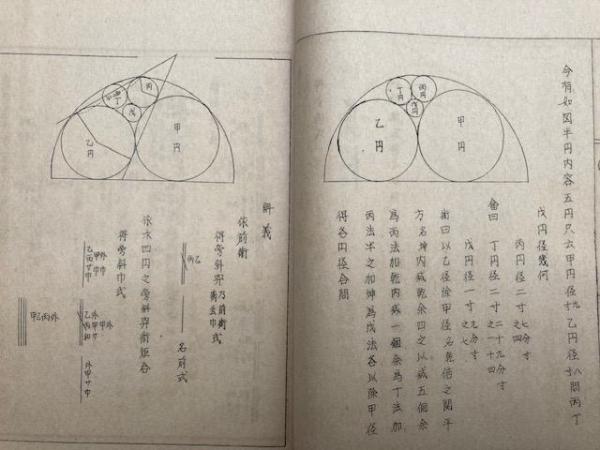 今有如図半円内容五円只云甲円径九寸乙円径八寸問丙丁
戊円径幾何
丙円径二寸七分寸之四
答曰 丁円径二寸二十九分寸之一十四
戊円径一寸九分寸之七
術曰以乙径除甲径名乾倍之開平
方名坤内減乾余四之以減五個余
為丙法加乾内減一個余為丁法加
丙法半之加坤為戊法各以除甲径
得各円径合問
丁円
丙円
戊円
乙円
甲円
解義
依前術
名前式
得旁斜巾式
甲乙丙外
丙
丁
戊
乙円
甲円